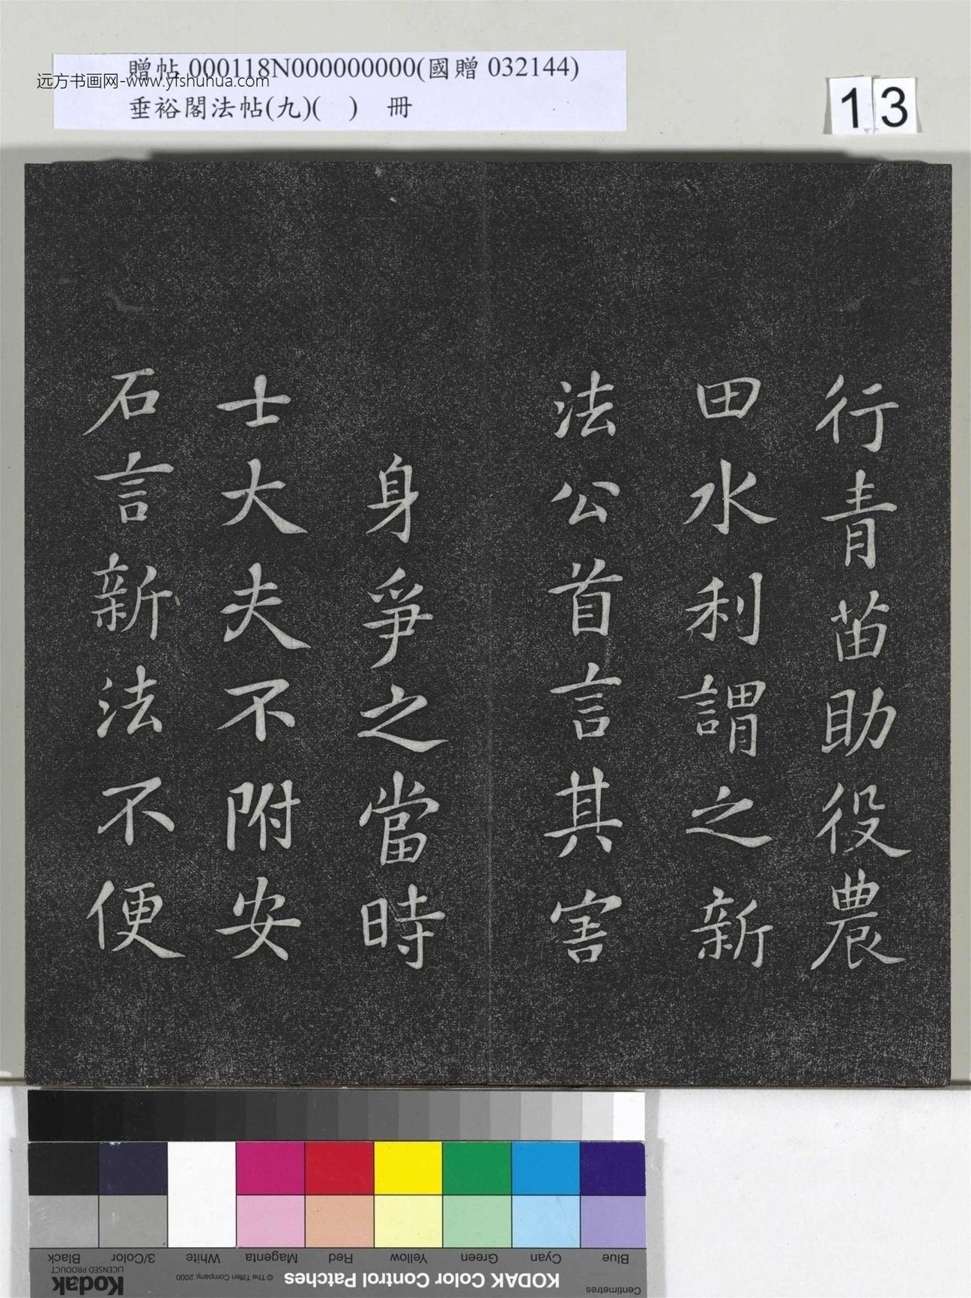 贈帖 000118N000000000(國贈 032144)
远方书画网-www.yfshuhua.com
垂裕閣法帖(九)( ) 冊
13
行青苗助役農
田水利謂之新
法公首言其害
身爭之當時
士大夫不附安
石言新法不便
Blue
Cyan
Green
Yellow
Red
Magenta
White
3/Color
Black
Centimetres
KODAK Color Control Patches
© The Tiffen Company, 2000
Kodak
LICENSED PRODUCT